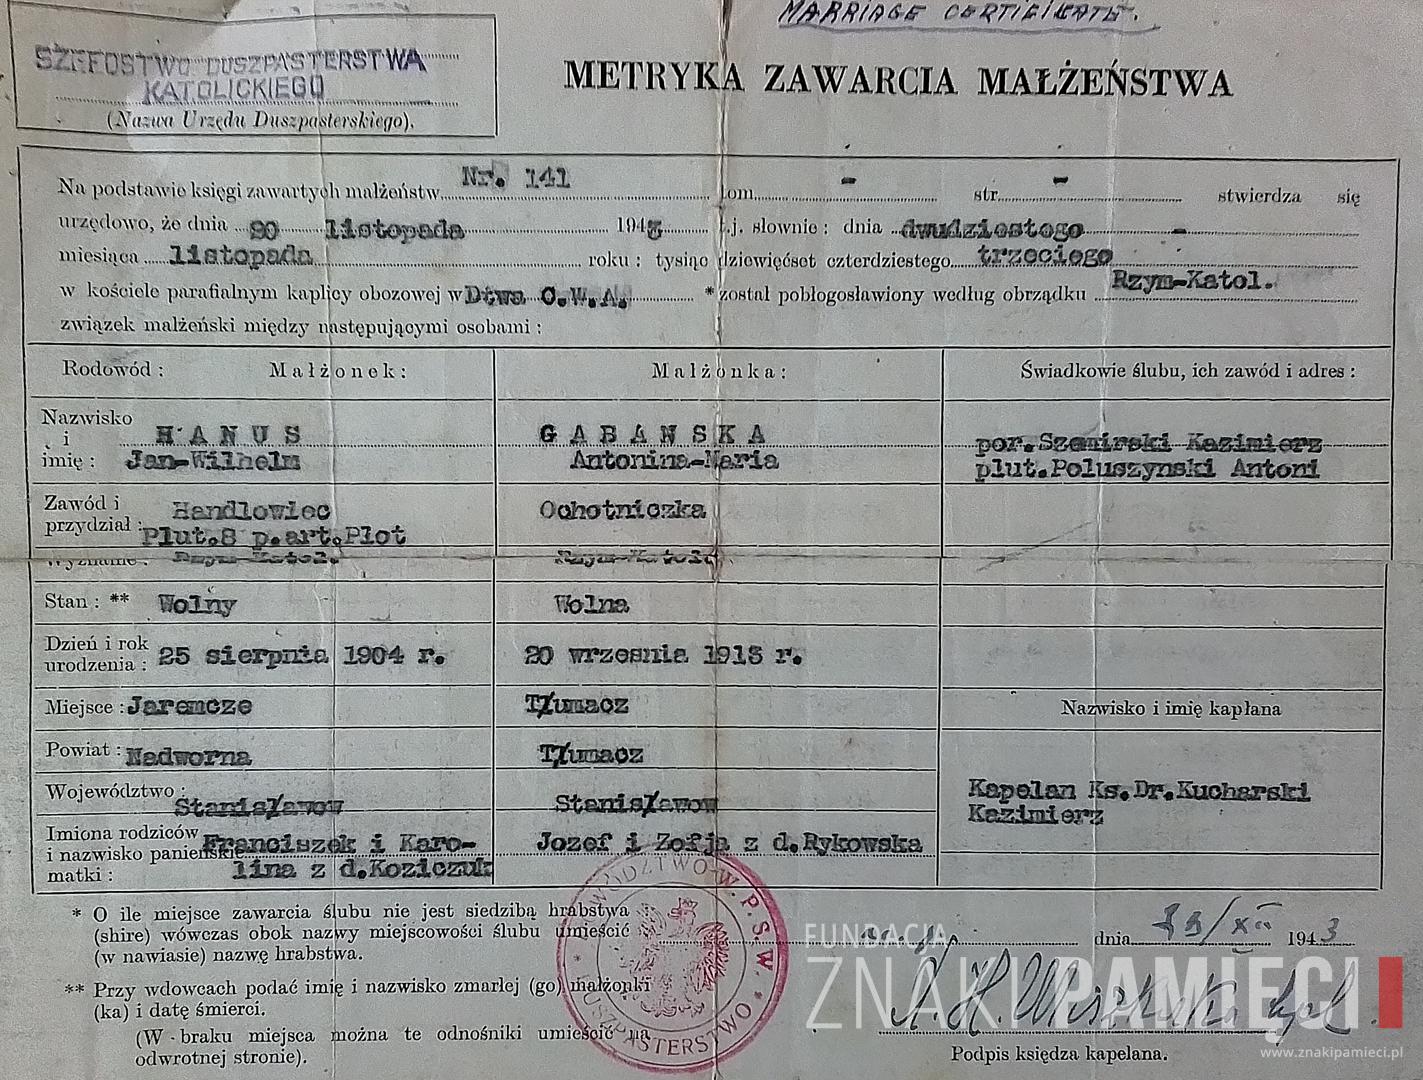 MARRIAGE CERTIFICATE.
SZEFOSTWO DUSZPASTERSTWA
KATOLICKIEGO
(Nazwa Urzędu Duszpasterskiego).
METRYKA ZAWARCIA MAŁŻEŃSTWA
Na podstawie księgi zawartych małżeństw Nr. 141 tom - str. - stwierdza się
urzędowo, że dnia 20 listopada 1943 t.j. słownie: dnia dwudziestego -
miesiąca listopada roku: tysiąc dziewięćset czterdziestego trzeciego
w kościele parafialnym kaplicy obozowej w Dtwa C.W.A. * został pobłogosławiony według obrządku Rzym-Katol.
związek małżeński między następującymi osobami:
Rodowód: Małżonek: Małżonka: Świadkowie ślubu, ich zawód i adres:
Nazwisko i imię: HANUS GABANSKA por. Szemirski Kazimierz
Jan-Wilhelm Antonina-Maria plut. Poluszynski Antoni
Zawód i przydział: Handlowiec Ochotniczka
Plut. 8 p.art.Plot
Wyznanie: Rzym-Katol. Rzym-Katol.
Stan: ** Wolny Wolna
Dzień i rok urodzenia: 25 sierpnia 1904 r. 20 wrzesnia 1915 r.
Miejsce: Jaremcze Tłumacz Nazwisko i imię kapłana
Powiat: Nadworna Tłumacz
Województwo: Stanisławow Stanisławow Kapelan Ks.Dr.Kucharski
Kazimierz
Imiona rodziców i nazwisko panieńskie matki: Franciszek i Karo- Jozef i Zofja z d.Rykowska
lina z d.Koziczuk
* O ile miejsce zawarcia ślubu nie jest siedzibą hrabstwa
(shire) wówczas obok nazwy miejscowości ślubu umieścić
(w nawiasie) nazwę hrabstwa.
** Przy wdowcach podać imię i nazwisko zmarłej (go) małżonki
(ka) i datę śmierci.
(W braku miejsca można te odnośniki umieścić na
odwrotnej stronie).
DOWÓDZTWO W.P.S.W. * DUSZPASTERSTWO *
dnia /XII 1943
Podpis księdza kapelana.
FUNDACJA
ZNAKI PAMIĘCI
www.znakipamieci.pl